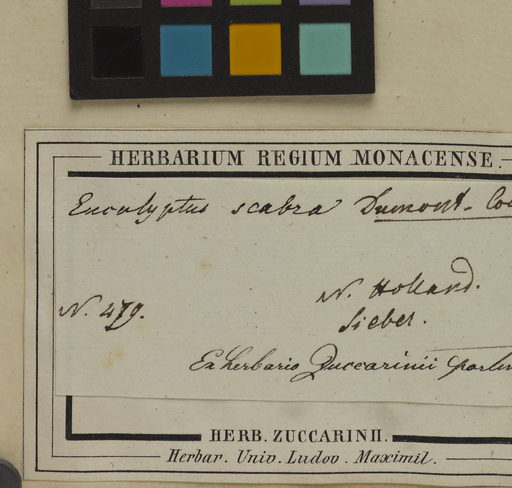 HERBARIUM REGIUM MONACENSE.
Eucalyptus scabra Dumont-
N. Holland.
N. 479.
Sieber.
Ex herbario Zuccarinii
HERB. ZUCCARINII.
Herbar. Univ. Ludov. Maximil.